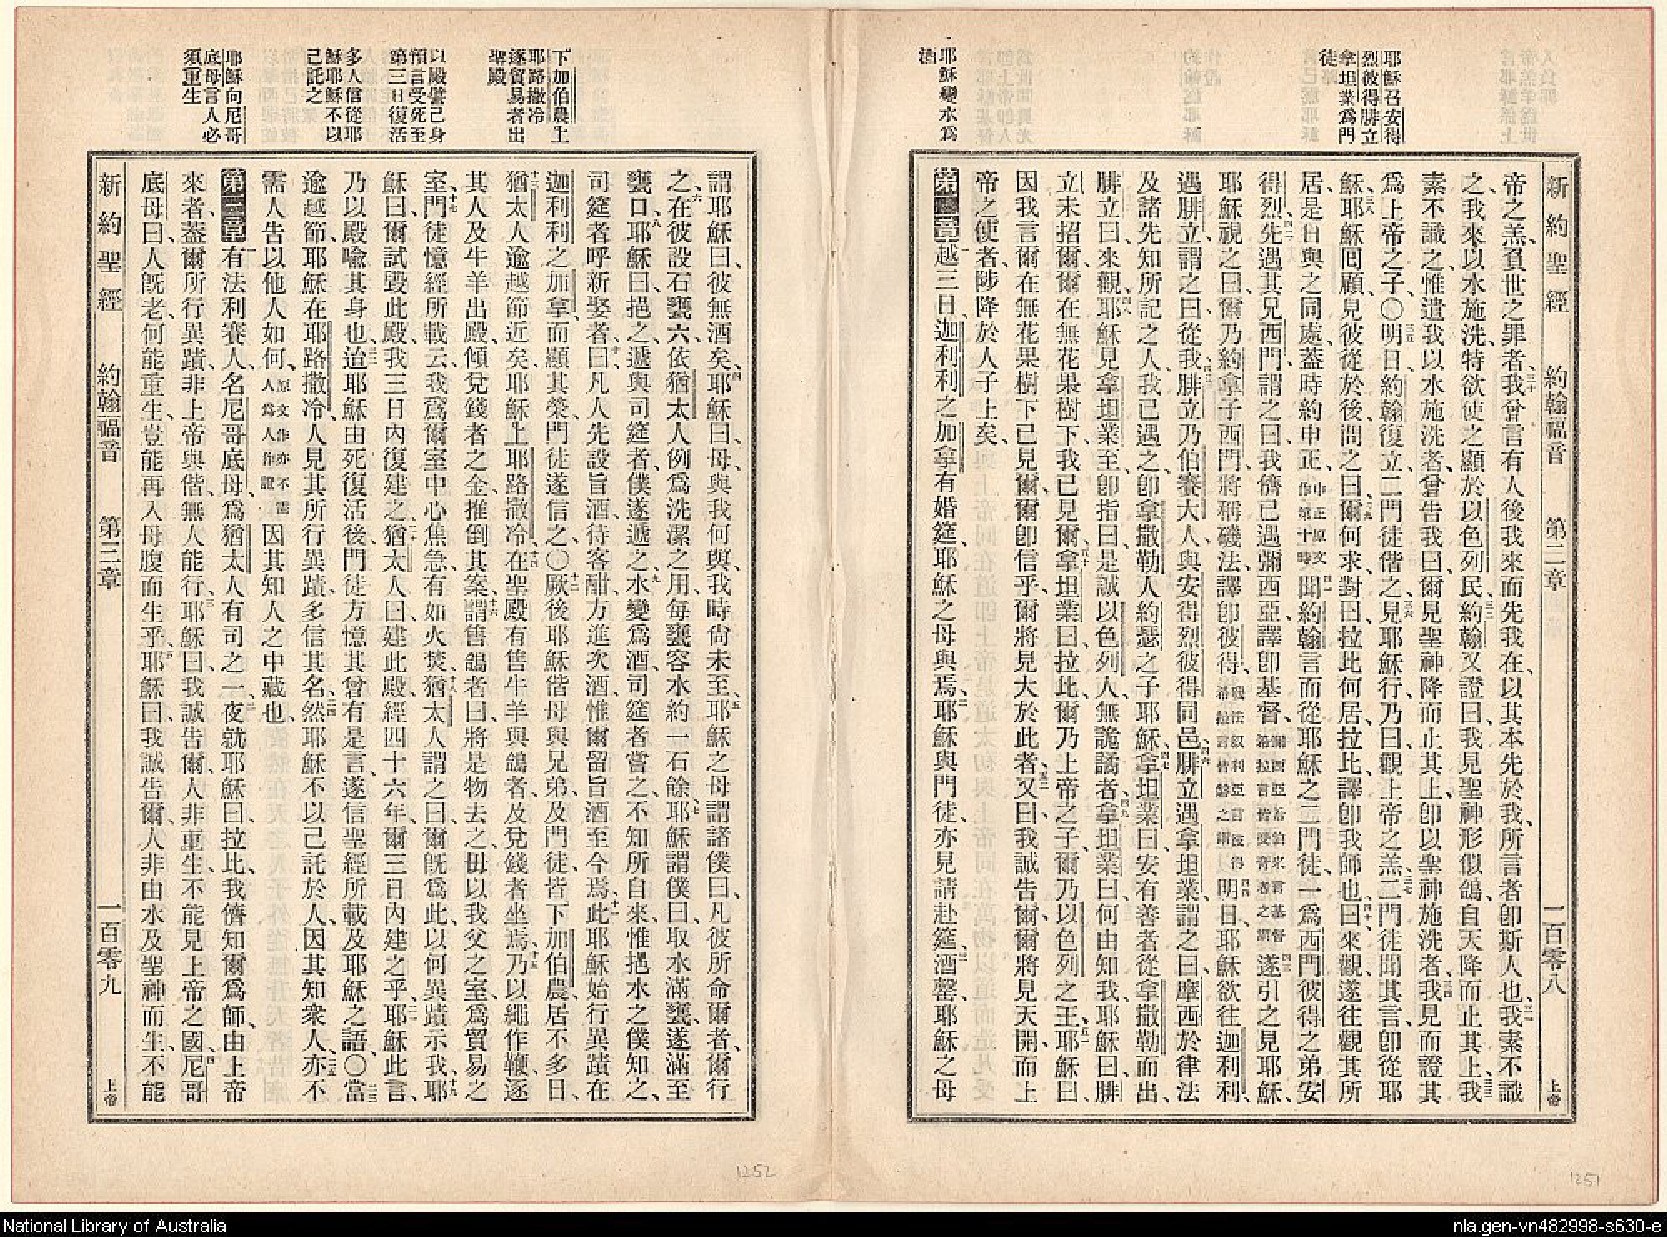 耶穌召安得
烈彼得腓立
拿坦業爲門
徒
耶穌變水爲
酒
新約聖經 約翰福音 第二章 一百零八 上帝
帝之羔負世之罪者我曾言有人後我來而先我在以其本先於我所言者卽斯人也我素不識
之我來以水施洗特欲使之顯於以色列民約翰又證曰我見聖神形似鴿自天降而止其上我
素不識之惟遣我以水施洗者曾告我曰爾見聖神降而止其上卽以聖神施洗者我見而證其
爲上帝之子〇明日約翰復立二門徒偕之見耶穌行乃曰觀上帝之羔二門徒聞其言卽從耶
穌耶穌回顧見彼從於後問之曰爾何求對曰拉比何居拉比譯卽我師也曰來觀遂往觀其所
居是日與之同處蓋時約申正申正原文作第十時聞約翰言而從耶穌之二門徒一爲西門彼得之弟安
得烈先遇其兄西門謂之曰我儕已遇彌西亞譯卽基督遂引之見耶穌
耶穌視之曰爾乃約拿子西門將稱磯法譯卽彼得明日耶穌欲往迦利利
遇腓立謂之曰從我腓立乃伯賽大人與安得烈彼得同邑腓立遇拿坦業謂之曰摩西於律法
及諸先知所記之人我已遇之卽拿撒勒人約瑟之子耶穌拿坦業曰安有善者從拿撒勒而出
腓立曰來觀耶穌見拿坦業至卽指曰是誠以色列人無詭譎者拿坦業曰何由知我耶穌曰腓
立未招爾爾在無花果樹下我已見爾拿坦業曰拉比爾乃上帝之子爾乃以色列之王耶穌曰
因我言爾在無花果樹下已見爾爾卽信乎爾將見大於此者又曰我誠告爾爾將見天開而上
帝之使者陟降於人子上矣
第二章越三日迦利利之加拿有婚筵耶穌之母與焉耶穌與門徒亦見請赴筵酒罄耶穌之母
下加伯農上
耶路撒冷
逐貿易者出
聖殿
以殿譬己身
預言受死至
第三日復活
多人信從耶
穌耶穌不以
己託之
耶穌向尼哥
底母言人必
須重生
謂耶穌曰彼無酒矣耶穌曰母與我何與我時尙未至耶穌之母謂諸僕曰凡彼所命爾者爾行
之在彼設石甕六依猶太人例爲洗潔之用每甕容水約一石餘耶穌謂僕曰取水滿甕遂滿至
甕口耶穌曰挹之遞與司筵者僕遂遞之水變爲酒司筵者嘗之不知所自來惟挹水之僕知之
司筵者呼新娶者曰凡人先設旨酒待客酣方進次酒惟爾留旨酒至今焉此耶穌始行異蹟在
迦利利之加拿而顯其榮門徒遂信之〇厥後耶穌偕母與兄弟及門徒皆下加伯農居不多日
猶太人逾越節近矣耶穌上耶路撒冷在聖殿有售牛羊與鴿者及兌錢者坐焉乃以繩作鞭逐
其人及牛羊出殿傾兌錢者之金推倒其案謂售鴿者曰將是物去之毋以我父之室爲貿易之
室門徒憶經所載云我爲爾室中心焦急有如火焚猶太人謂之曰爾旣爲此以何異蹟示我耶
穌曰爾試毀此殿我三日內復建之猶太人曰建此殿經四十六年爾三日內建之乎耶穌此言
乃以殿喩其身也迨耶穌由死復活後門徒方憶其曾有是言遂信聖經所載及耶穌之語〇當
逾越節耶穌在耶路撒冷人見其所行異蹟多信其名然耶穌不以己託於人因其知衆人亦不
需人告以他人如何原文作亦不需人爲人作證因其知人之中藏也
第三章有法利賽人名尼哥底母爲猶太人有司之一夜就耶穌曰拉比我儕知爾爲師由上帝
來者蓋爾所行異蹟非上帝與偕無人能行耶穌曰我誠告爾人非重生不能見上帝之國尼哥
底母曰人旣老何能重生豈能再入母腹而生乎耶穌曰我誠告爾人非由水及聖神而生不能
新約聖經 約翰福音 第三章 一百零九 上帝
1252
1251
National Library of Australia
nla.gen-vn482998-s630-e